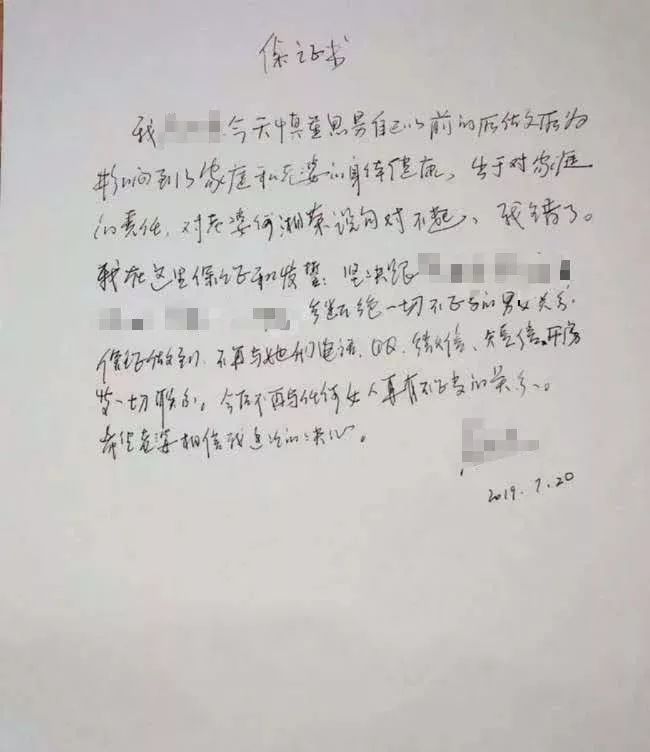 保证书
我 今天慎重思易自己以前的所做所为
影响到了家庭和老婆的身体健康，出于对家庭
的责任，对老婆何湘 说句对不起，我错了。
我在这里保证和发誓：坚决跟
断绝一切不正当的男女关系，
保证做到，不再与她们电话、QQ、微信、短信、开房
等一切联系。今后不再与任何女人再有不正当的关系。
希望老婆相信我这次的决心。
2019.7.20